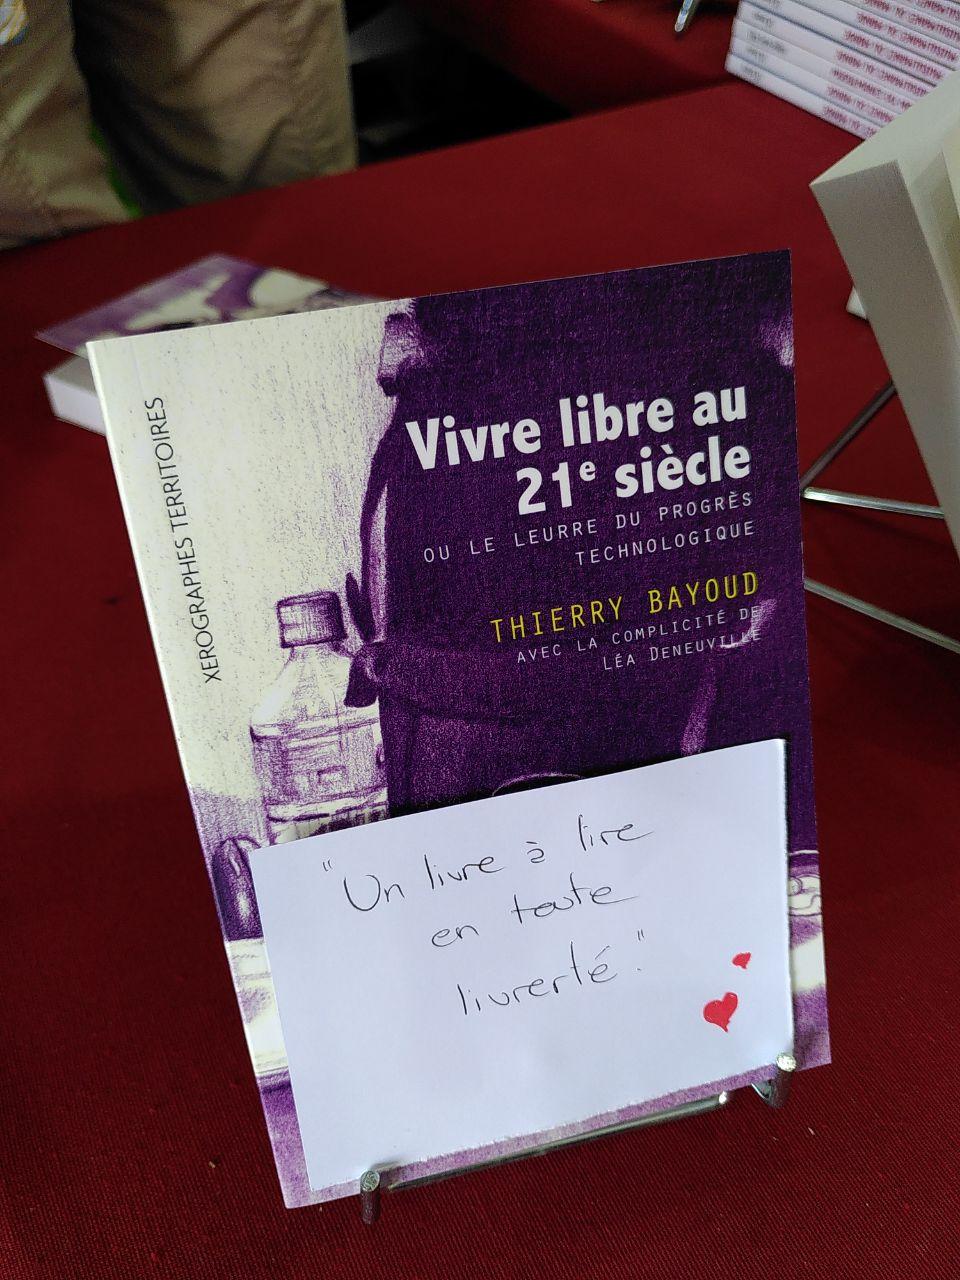 XEROGRAPHES TERRITOIRES
Vivre libre au
21e siècle
OU LE LEURRE DU PROGRÈS
TECHNOLOGIQUE
THIERRY BAYOUD
AVEC LA COMPLICITÉ DE
LÉA DENEUVILLE
"Un livre à lire
en toute
livrerté."